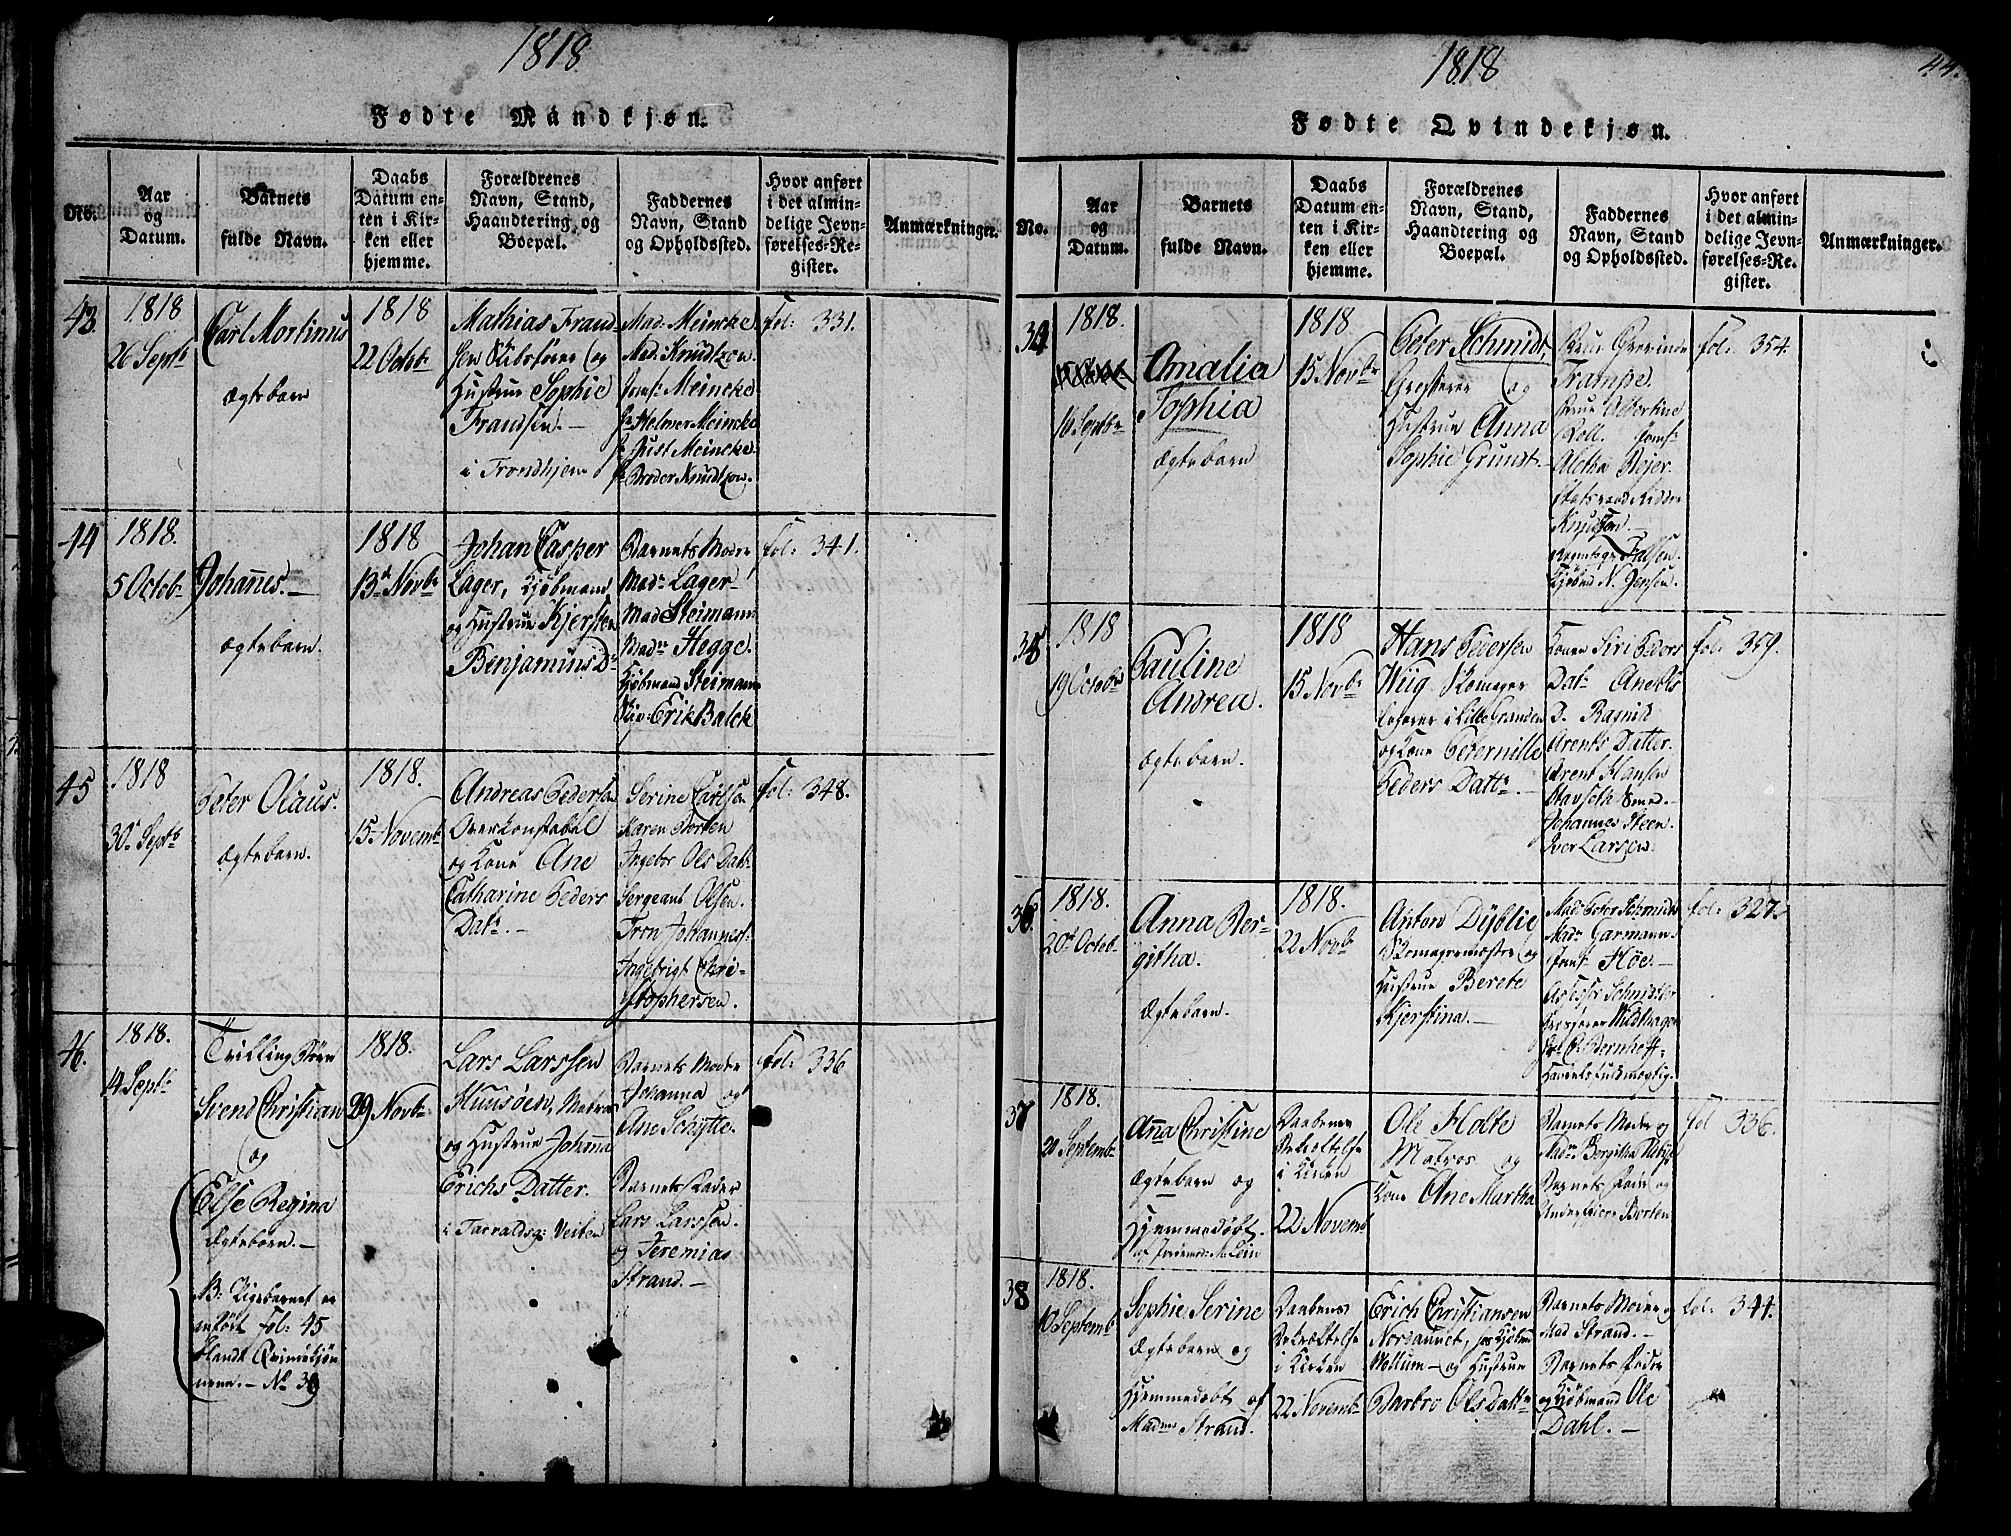 1818
Fødte Mandkjøn.
No.
Aar
og
Datum.
Barnets
fulde Navn.
Daabs
Datum en-
ten i Kir-
ken eller
hjemme.
Forældrenes
Navn, Stand,
Haandtering og
Boepæl.
Faddernes
Navn, Stand
og Opholdssted.
Hvor anført
i det almin-
delige Jevn-
førelses-Re-
gister.
Anmærkninger.
43
1818
26 Septb
Carl Mortinus
Ægtebarn
1818
22 Octob
Mathias Frand
sen
og
Hustrue Sophie
Frandsen.
i Trondhjem
Mad. Meincke
Mad: Knudtzon
Jomf: Meincke
Hr Helmer Meincke
Hr Just Meincke.
Hr Broder Knudtzon.
fol: 331.
44
1818.
5 Octob
Johannes.
Ægtebarn.
1818
13de Novbr
Johan Casper
Lager, Kjøbmand
og Hustrue Kjersten
Benjamins Dr
Barnets Moder
Madr Lager
Mad Steimann
Madr Hegge.
Kjøbmand Steimann
Erik Balck
fol: 341.
45
1818
30 Septb
Peter Olaus.
Ægtebarn.
1818.
15 Novemb
Andreas Pedersen
Overkonstabel
og Kone Ane
Catharine Peders
Datr.
Serine Carlsen
Karen Borten
Ingebor Ols Datr
Sergeant Olsen.
Tron Johanness:
Ingebrigt Chri-
stophersen.
fol: 348.
46.
1818.
14 Septb
Tvilling Børn
Svend Christian
og
Else Regina
Ægtebørn.
NB: Pigebarnet er
anført fol: 45
blandt Qvindekjøn
nene. No 39
1818.
29 Novb
Lars Larssen
Huusøen, Matros
og Hustrue Johanna
Erichs Datter.
i Tarraldsg: Veiten
Barnets Moder
Johanna og
Ane Schytte.
Barnets Fader
Lars Larssen.
og Jeremias
Strand.
fol: 336
1818
44.
Fødte Qvindekjøn.
No.
Aar
og
Datum.
Barnets
fulde Navn.
Daabs
Datum en-
ten i Kir-
ken eller
hjemme.
Forældrenes
Navn, Stand,
Haandtering og
Boepæl.
Faddernes
Navn, Stand
og Opholdssted.
Hvor anført
i det almin-
delige Jevn-
førelses-Re-
gister.
Anmærkninger.
34
1818.
10 Septbr
Amalia
Sophia
Ægtebarn
1818
15 Novbr
Peter Schmidt,
Grosserer og
Hustrue Anna
Sophie Grunst
Frue Grevinde
Trampe.
Frue Albertine
Lell. Jomf:
Aletha Bejer.
Statsraad Ridder
Knudtzon
Falsen.
Kjøbmd N. Jensen.
fol: 354.
35
1818
19 Octobr
Pauline
Andrea.
Ægtebarn.
1818
15 Novb
Hans Pedersen
Wiig
i Lille Granden
og Kone Pedernille
Peders Dattr.
Konen Siri Peders
Datr Anekts
D. Rasmik
Arents Datter.
Arent Hansen
Stavseth Smed.
Johannes Steen.
Iver Larsen.
fol: 359.
36.
1818.
20 Octob
Anna Ber-
githa.
Ægtebarn.
1818.
22 Novb
Anton Dyblie
Skomagermester og
Hustrue Berete
Kjerstina.
Mad Peter Schmidt
Madr Garmann
Jomf Höe.
Assessor Schmidt
Wildhagen
Bernhoff
Handelsfuldmægtig.
fol: 327.
37
1818.
20 Septemb
Anna Christine
Ægtebarn og
Hjemmedøbt
af Jordemod: M. Lein
Daabens
Bekræftelse
i Kirken
22 Novemb
Ole Holte
Matros og
Kone Ane Martha
Barnets Moder og
Madr Bergitha
Barnets Fader og
Underofficer Borten
fol 336.
38
1818.
10 Septemb
Sophie Serine
Ægtebarn og
Hjemmedøbt af
Madme Strand.
Daabens
Bekræftelse
i Kirken
22 Novemb
Erich Christiansen
Nordannet,
Mellum og Hustrue
Barbro Ols Datr
Barnets Moder og
Mad Strand.
Barnets Fader
og Kjøbmand Ole
Dahl.
fol: 344.